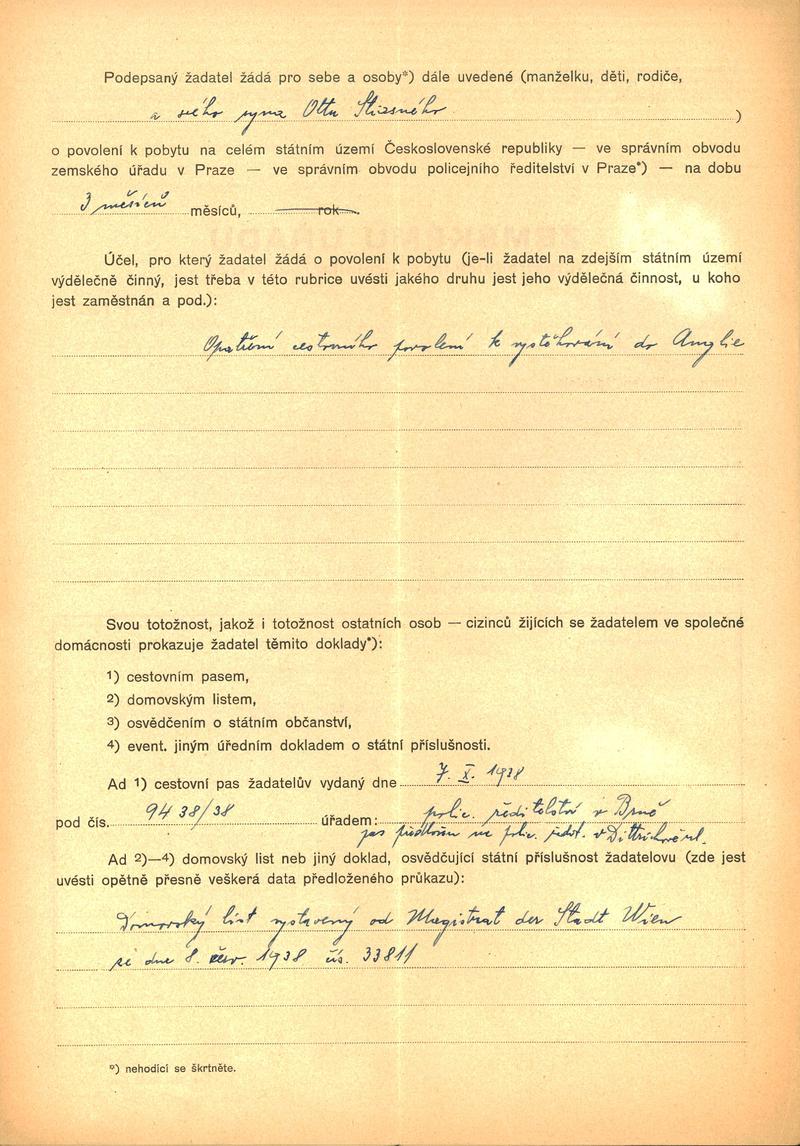 Podepsaný žadatel žádá pro sebe a osoby*) dále uvedené (manželku, děti, rodiče,
a svého syna Ottu Stiasného )
o povolení k pobytu na celém státním území Československé republiky — ve správním obvodu
zemského úřadu v Praze — ve správním obvodu policejního ředitelství v Praze*) — na dobu
3 měsíců měsíců, rok.
Účel, pro který žadatel žádá o povolení k pobytu (je-li žadatel na zdejším státním území
výdělečně činný, jest třeba v této rubrice uvésti jakého druhu jest jeho výdělečná činnost, u koho
jest zaměstnán a pod.):
Opatření cestovního povolení k vystěhování do Anglie
Svou totožnost, jakož i totožnost ostatních osob — cizinců žijících se žadatelem ve společné
domácnosti prokazuje žadatel těmito doklady*):
1) cestovním pasem,
2) domovským listem,
3) osvědčením o státním občanství,
4) event. jiným úředním dokladem o státní příslušnosti.
Ad 1) cestovní pas žadatelův vydaný dne 7. X. 1938
pod čís. 9438/38 úřadem: polic. ředitelství v Brně
pas předložen na polic. ředit. v
Ad 2)—4) domovský list neb jiný doklad, osvědčující státní příslušnost žadatelovu (zde jest
uvésti opětně přesně veškerá data předloženého průkazu):
Domovský list vystavený od Magistrat der Stadt Wien
ze dne 8. červ. 1938 čís. 33811
*) nehodící se škrtněte.